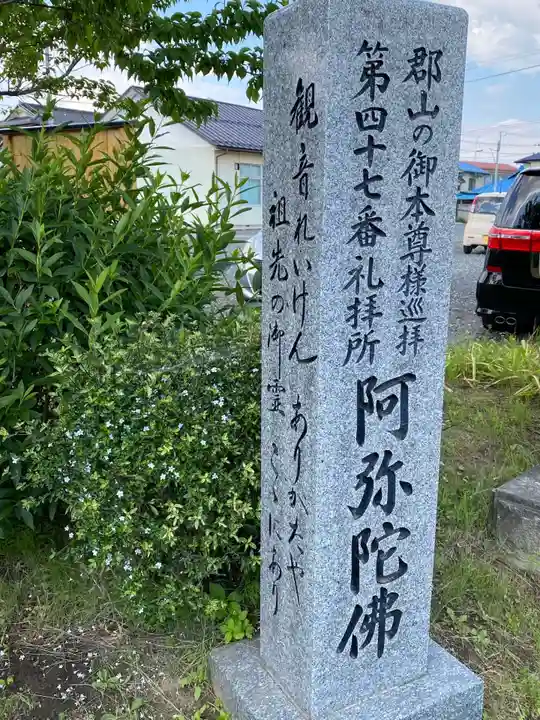 郡山の御本尊様巡拝
第四十七番礼拝所
阿弥陀佛
観音れいけん ありがたや
祖先の御霊 こゝにあり